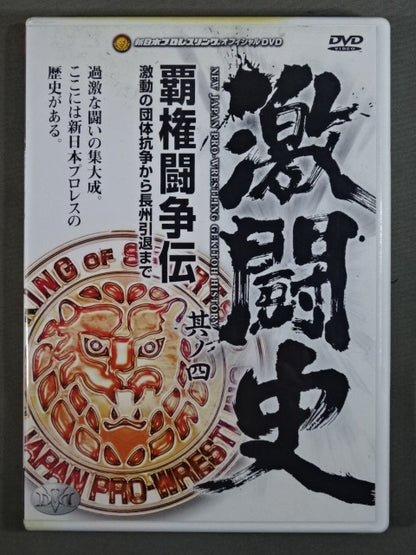 新日本プロレスリング・オフィシャルDVD
DVD
VIDEO
激闘史
NEW JAPAN PRO-WRESTLING GEKITOH HISTORY
覇権闘争伝
其ノ四
激動の団体抗争から長州引退まで
過激な闘いの集大成。
ここには新日本プロレスの
歴史がある。
ING OF S
JAPAN PRO-WREST